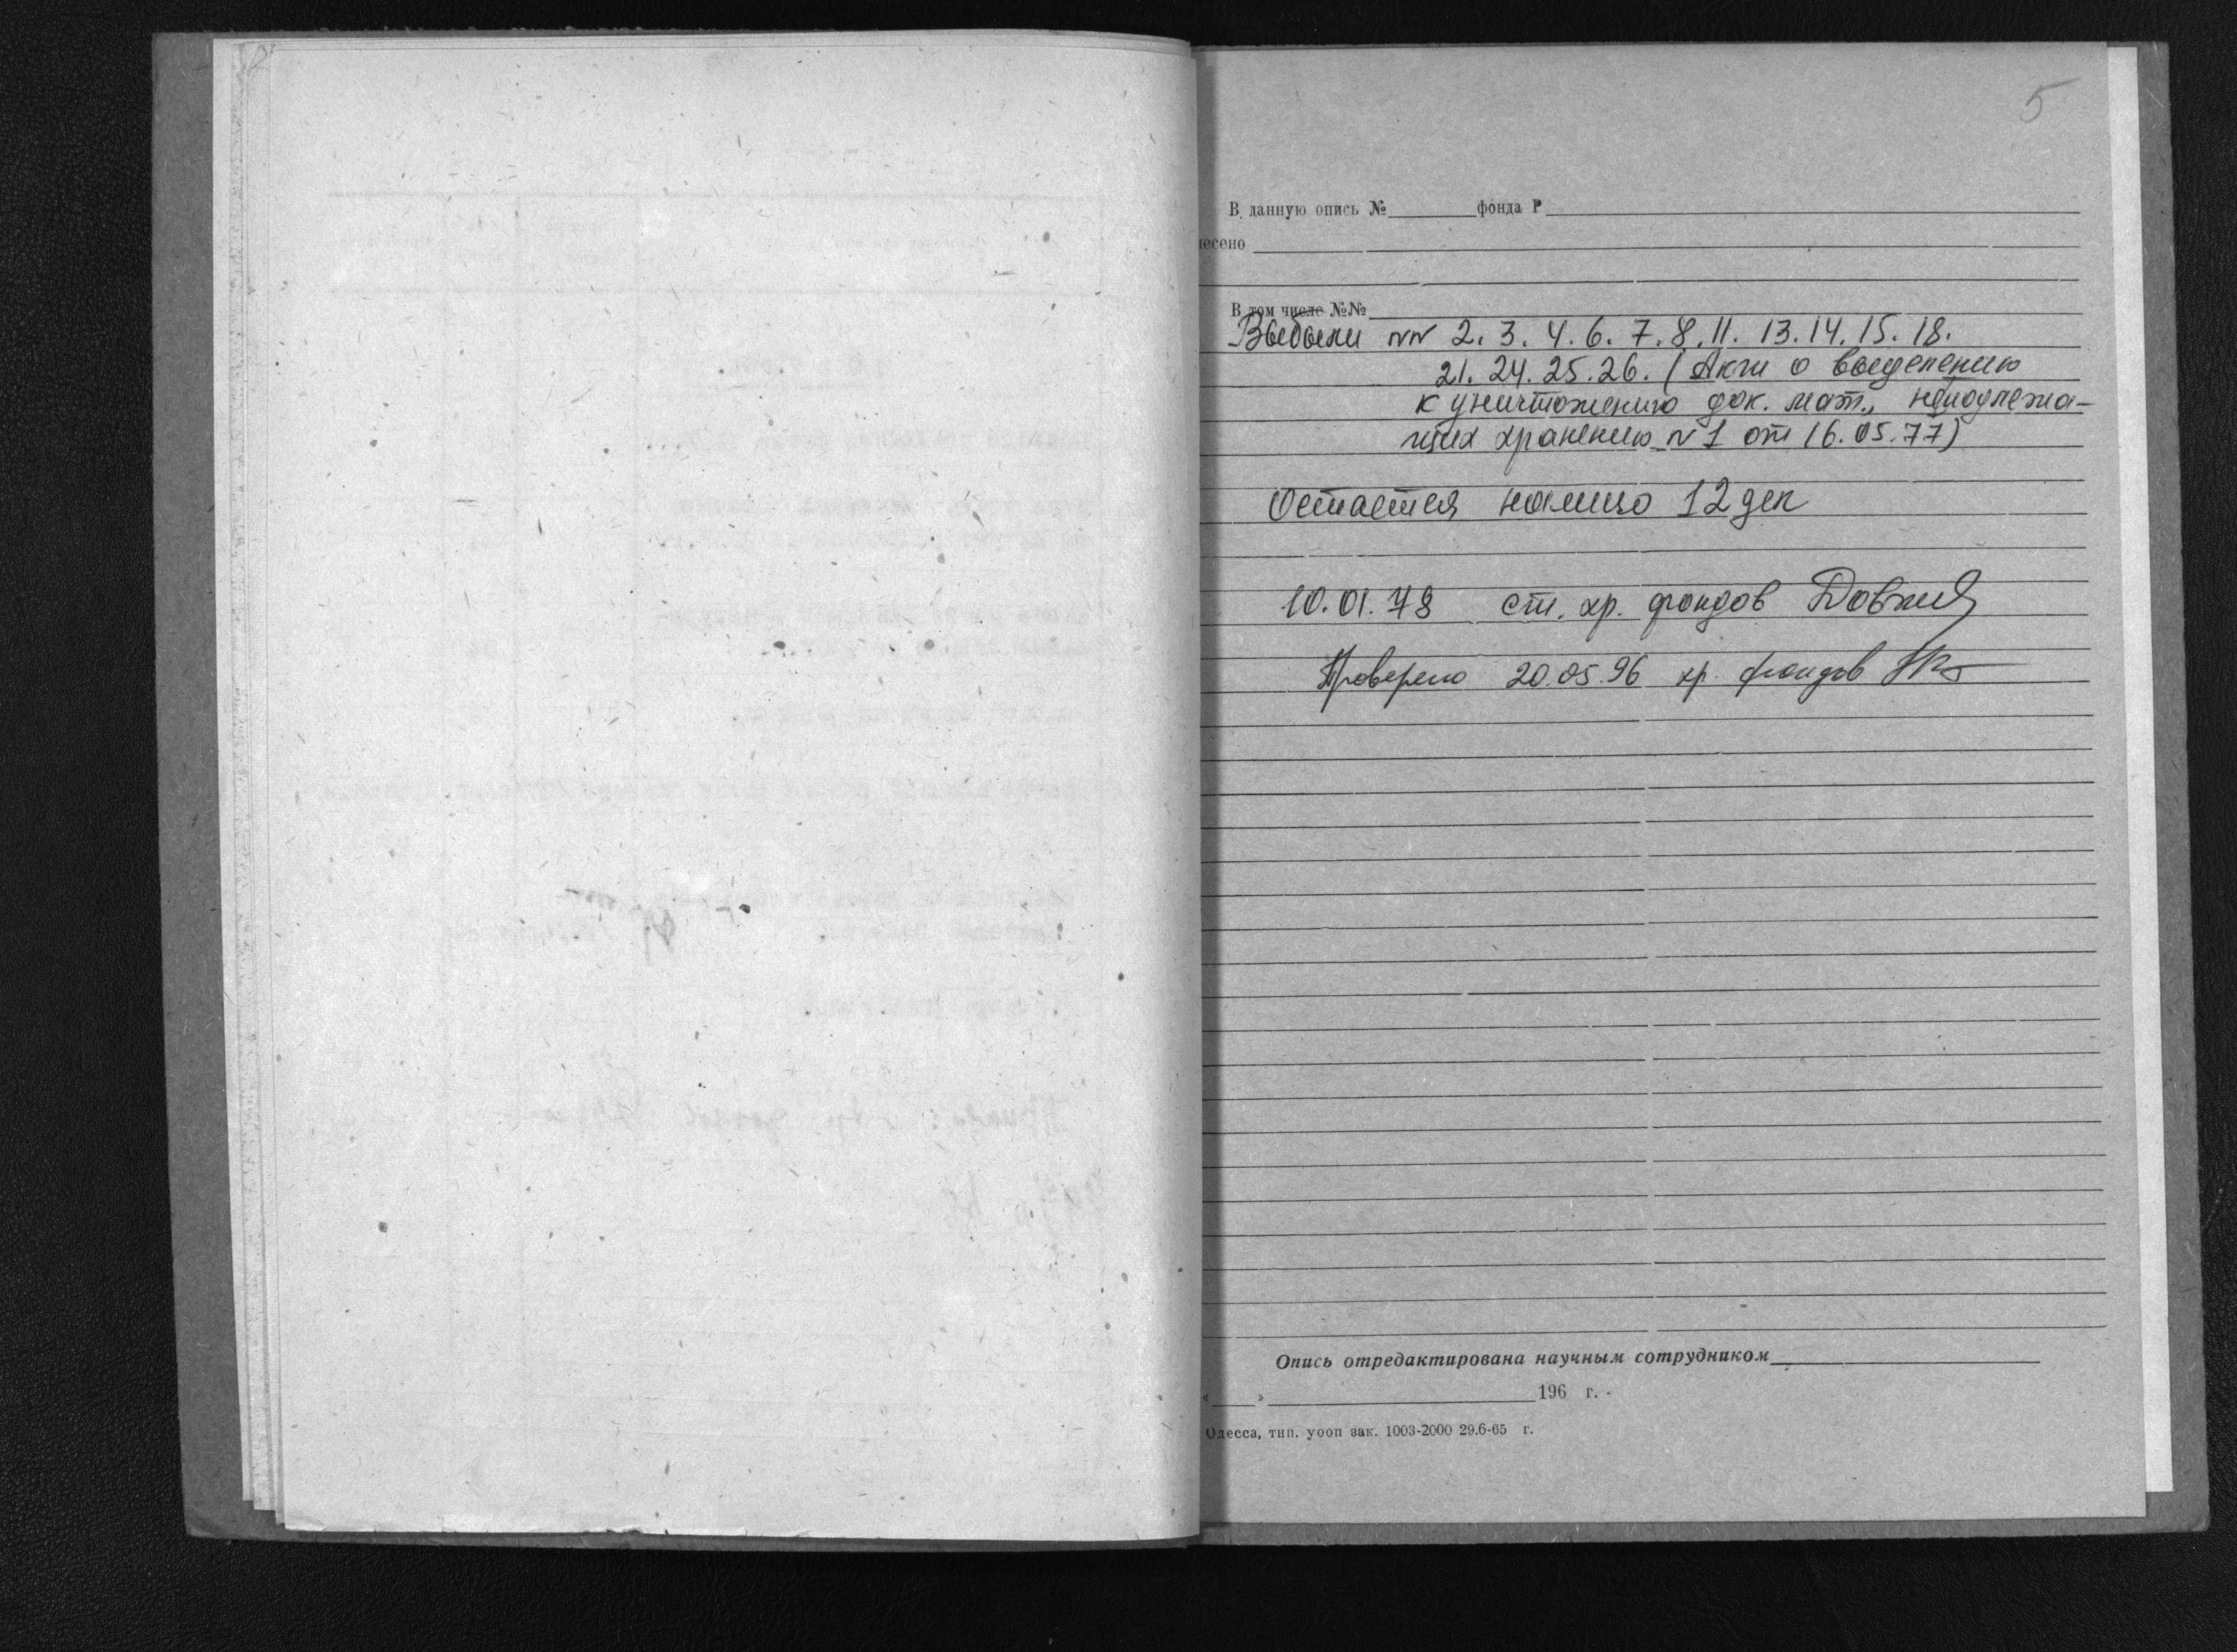 5
В данную опись № фонда Р
несено
В том числе №№
Выбыли NN 2. 3. 4. 6. 7. 8. 11. 13. 14. 15. 18.
21. 24. 25. 26. (Акт о выделению
к уничтожению док. мат., неподлежа-
щих хранению N 1 от 16.05.77)
Остается налицо 12 дел
10.01.78 ст. хр. фондов
Проверено 20.05.96 хр. фондов
Опись отредактирована научным сотрудником
« » 196 г.
Одесса, тип. уооп зак. 1003-2000 29.6-65 г.